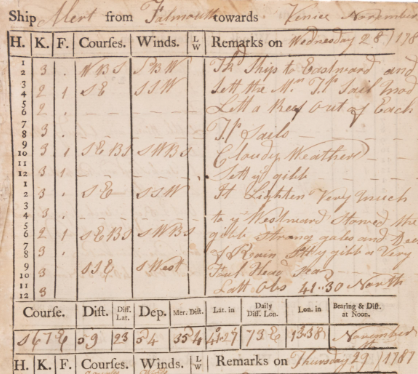 Ship Alert from Falmouth towards Venice November
H. K. F. Courses. Winds. L W Remarks on Wednesday 28 178
1 Ship to Eastward and
2 3 . W B S S B W
3 Sett the Mn Tp Sail and
4 2 1 S E S S W
5 Lett a Reef Out of Each
6 2 .
7 Tp Sails
8 3 .
9 Cloudy Weather
10 3 1 S E B S S W B S
11 Sett ye gibb
12 3 1
1 It Lighten Very Much
2 3 . S E S S W
3 to ye Westward Stowed the
4 3 .
5 gibb Strong gales and
6 2 1 S E B S S W B S
7 of Rain ye gibb a Very
8 3 .
9 Sea
10 3 S S E S West
11 Latt Obs 41-30 North
12 3 .
Course. Dist. Diff. Lat. Dep. Mer. Dist. Lat. in Daily Diff. Lon. Lon. in Bearing & Dist. at Noon.
S 67 E 59 23 54 73 E 13.38 November
H. K. F. Courses. Winds. L W Remarks on Thursday 29 1787